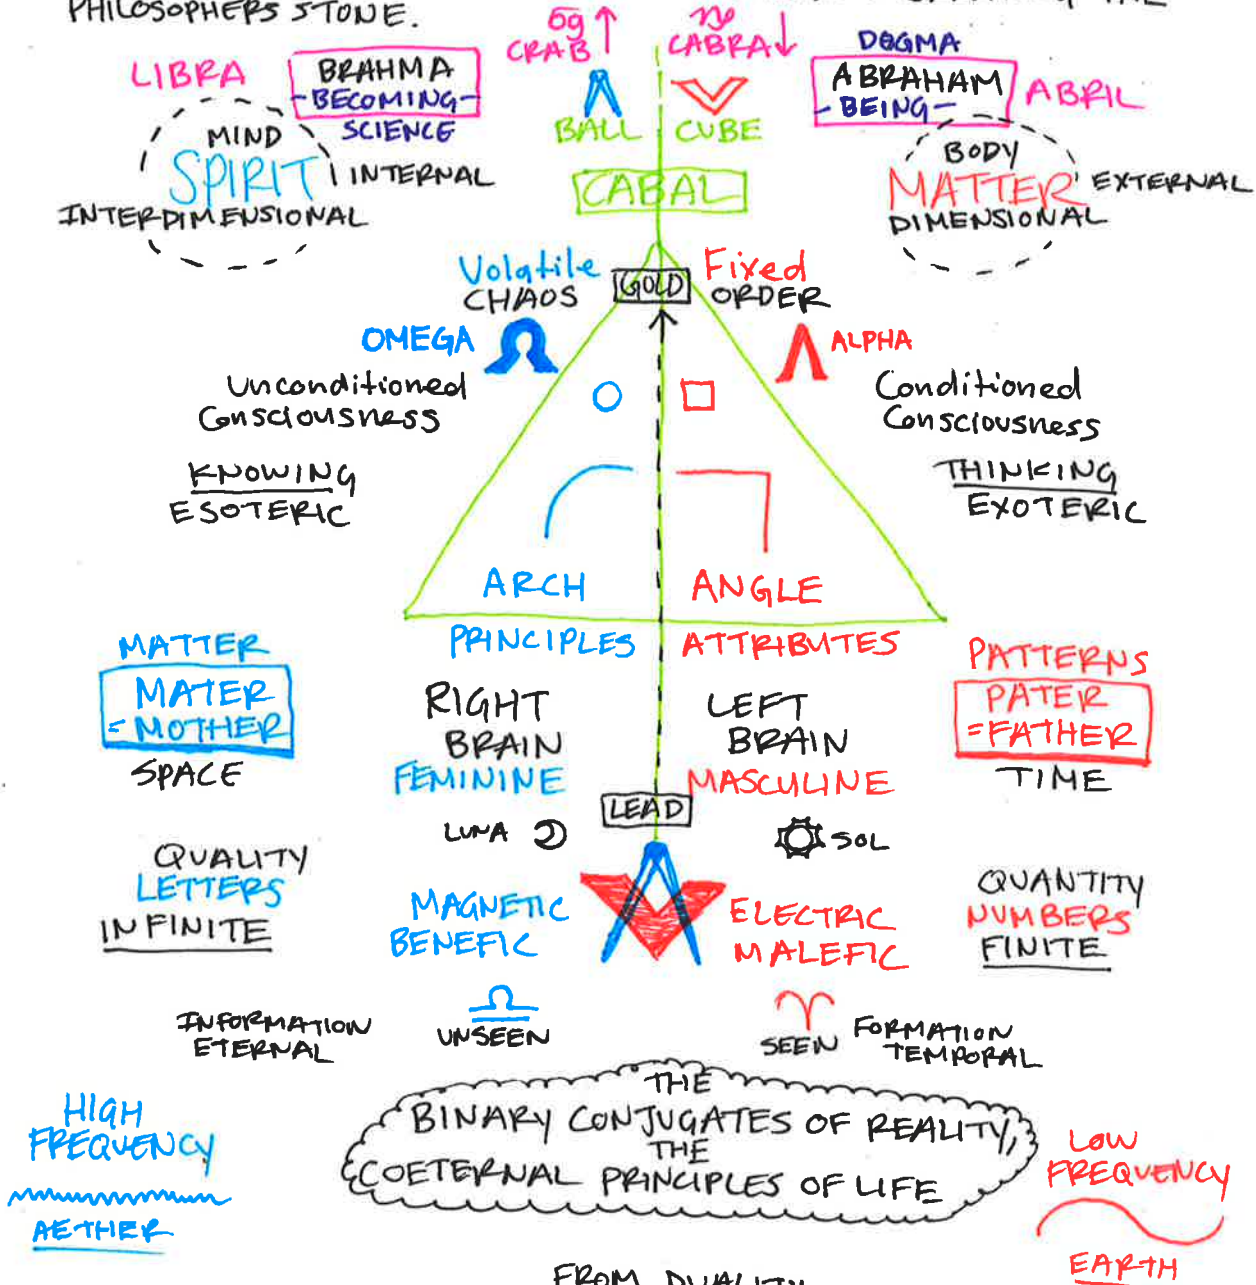 PHILOSOPHERS STONE.
THE
CRAB
CABRA
DOGMA
LIBRA
BRAHMA
-BECOMING-
SCIENCE
ABRAHAM
-BEING-
ABRIL
BALL
CUBE
CABAL
MIND
SPIRIT
INTERNAL
INTERDIMENSIONAL
BODY
MATTER
EXTERNAL
DIMENSIONAL
Volatile
CHAOS
GOLD
Fixed
ORDER
OMEGA
ALPHA
Unconditioned
Consciousness
Conditioned
Consciousness
KNOWING
ESOTERIC
THINKING
EXOTERIC
ARCH
ANGLE
PRINCIPLES
ATTRIBUTES
MATTER
MATER
=MOTHER
SPACE
PATTERNS
PATER
=FATHER
TIME
RIGHT
BRAIN
FEMININE
LEFT
BRAIN
MASCULINE
LEAD
LUNA
SOL
QUALITY
LETTERS
INFINITE
QUANTITY
NUMBERS
FINITE
MAGNETIC
BENEFIC
ELECTRIC
MALEFIC
INFORMATION
ETERNAL
UNSEEN
SEEN
FORMATION
TEMPORAL
THE
BINARY CONJUGATES OF REALITY,
THE
COETERNAL PRINCIPLES OF LIFE
HIGH
FREQUENCY
AETHER
LOW
FREQUENCY
EARTH
FROM DUALITY